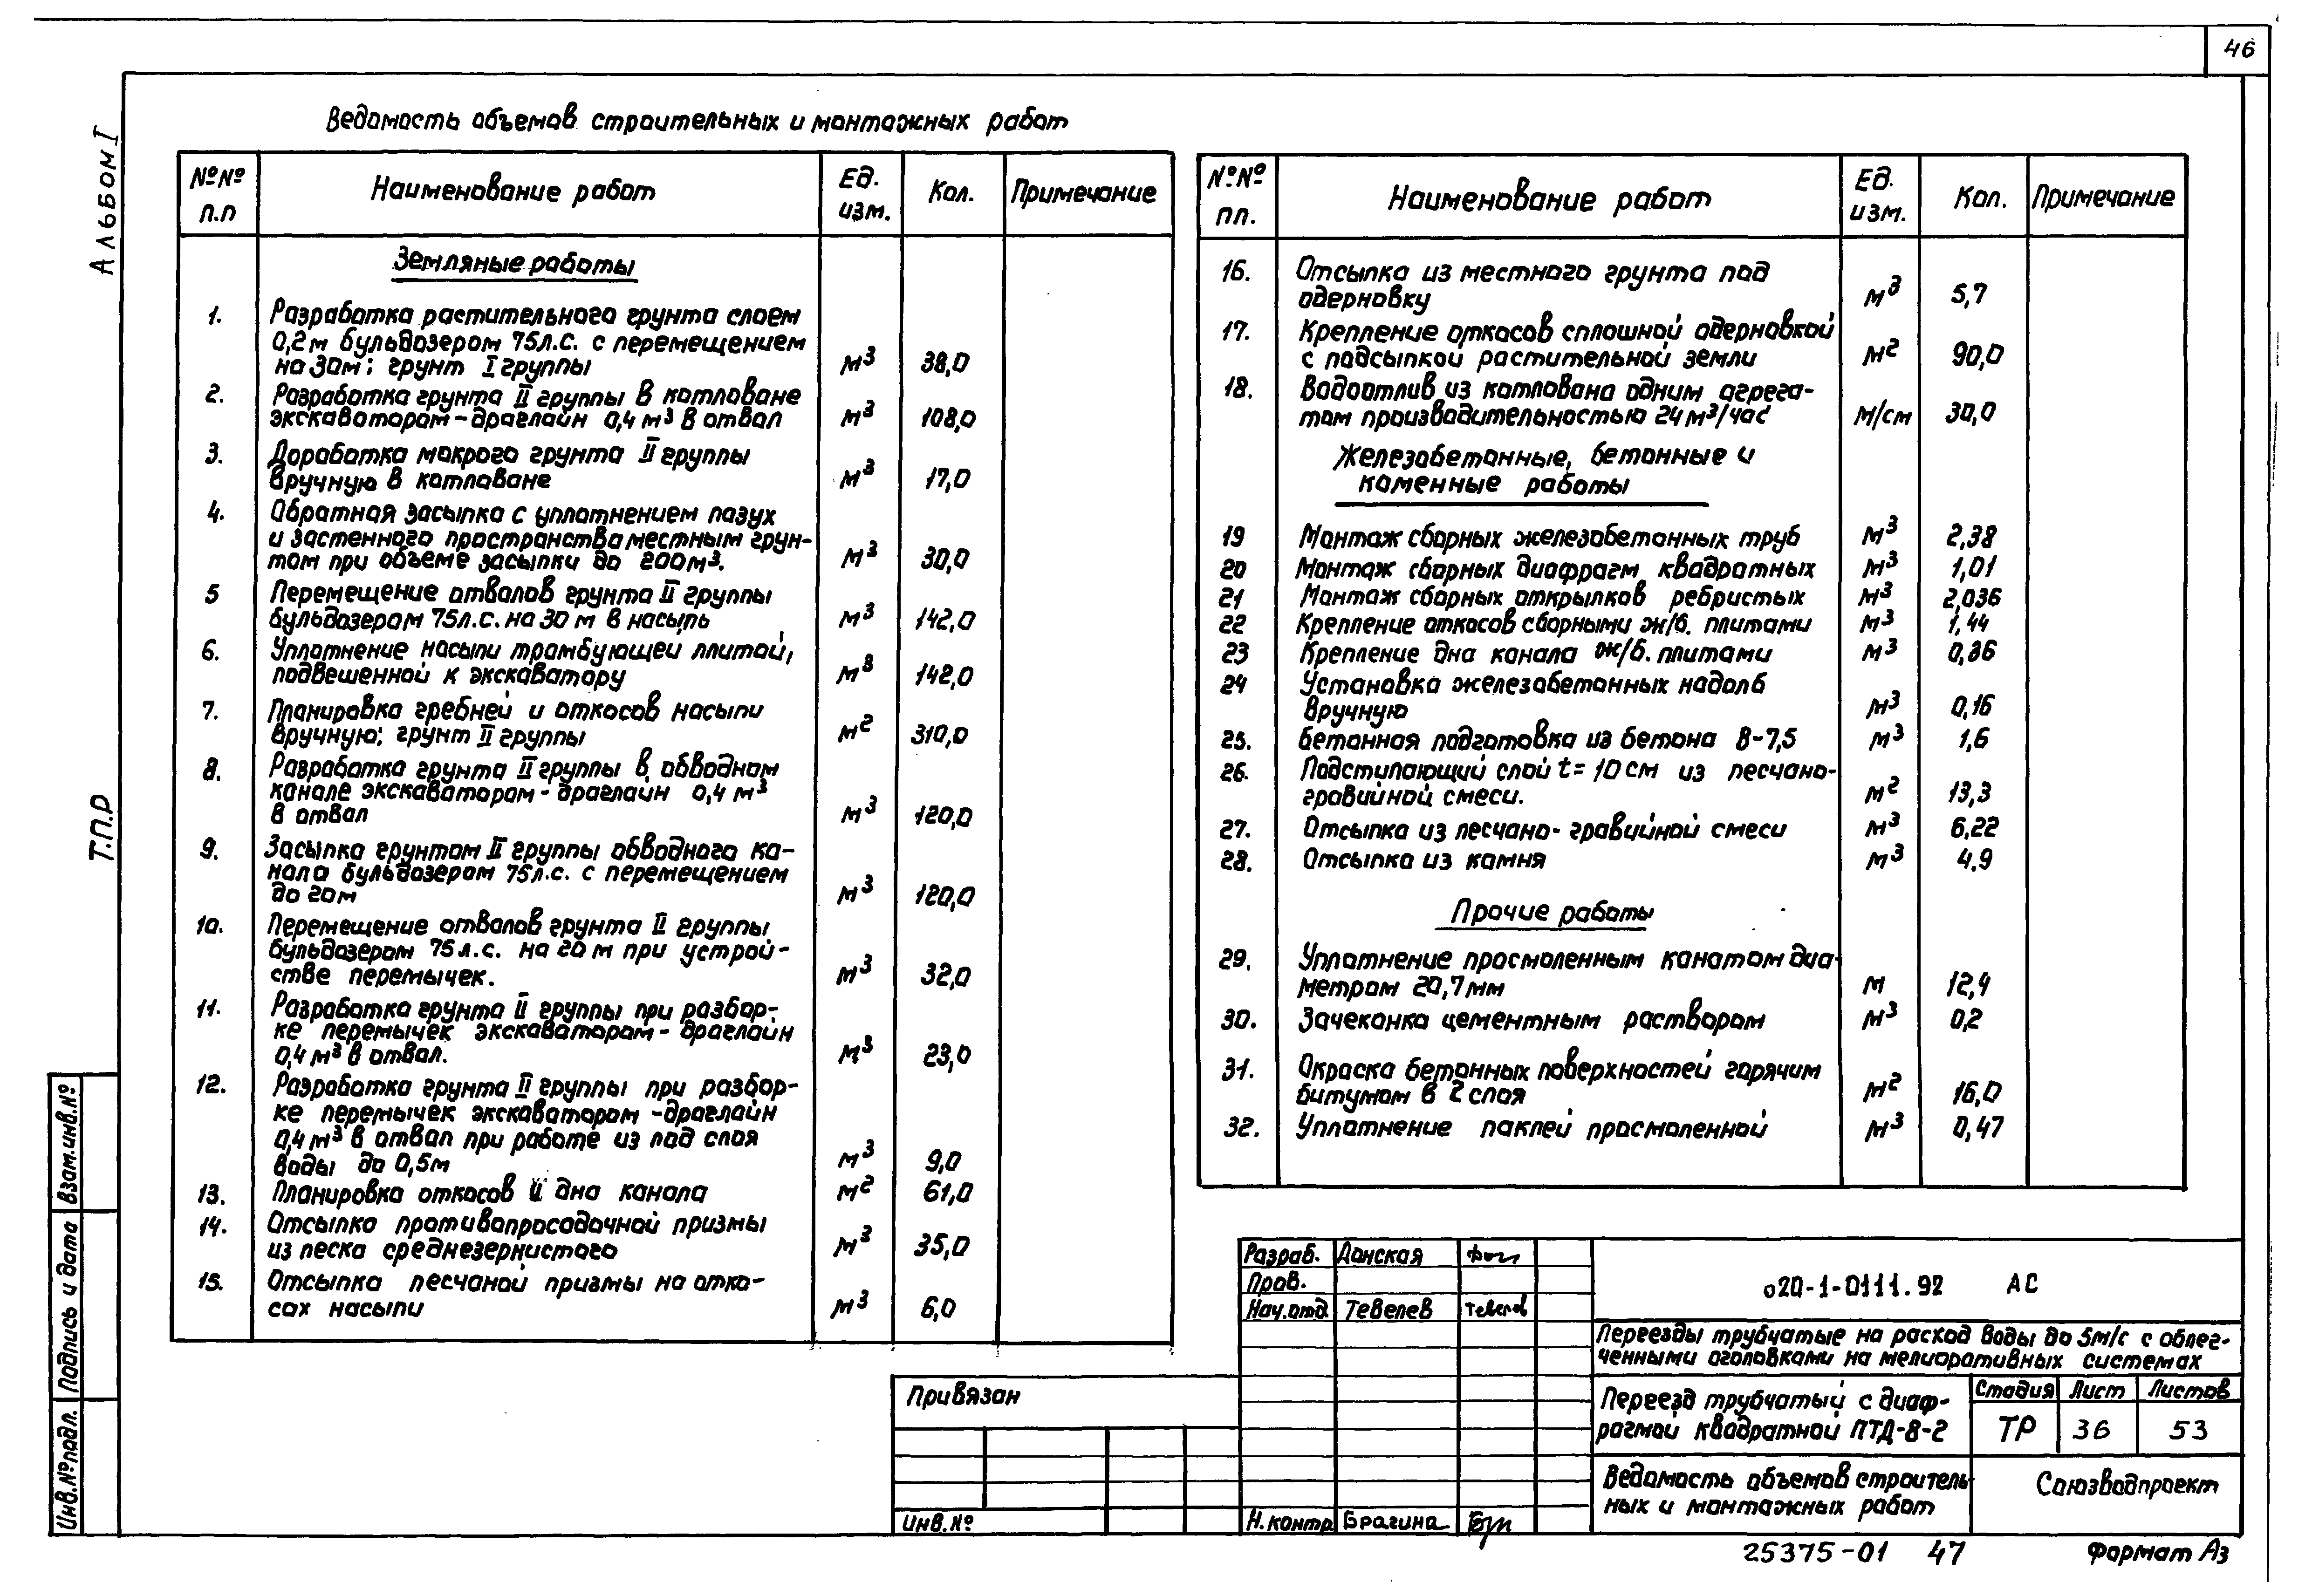 46
Альбом I
Т.П.Р
Ведомость объемов строительных и монтажных работ
№№ п.п
Наименование работ
Ед. изм.
Кол.
Примечание
Земляные работы
1. Разработка растительного грунта слоем
0,2м бульдозером 75л.с. с перемещением
на 30м; грунт I группы м³ 38,0
2. Разработка грунта II группы в котловане
экскаватором-драглайн 0,4 м³ в отвал м³ 108,0
3. Доработка мокрого грунта II группы
вручную в котловане м³ 17,0
4. Обратная засыпка с уплотнением пазух
и застенного пространства местным грун-
том при объеме засыпки до 200м³. м³ 30,0
5 Перемещение отвалов грунта II группы
бульдозером 75л.с. на 30 м в насыпь м³ 142,0
6. Уплотнение насыпи трамбующей плитой,
подвешенной к экскаватору м³ 142,0
7. Планировка гребней и откосов насыпи
вручную; грунт II группы м² 310,0
8. Разработка грунта II группы в обводном
канале экскаватором-драглайн 0,4 м³
в отвал м³ 120,0
9. Засыпка грунтом II группы обводного ка-
нала бульдозером 75л.с. с перемещением
до 20м м³ 120,0
10. Перемещение отвалов грунта II группы
бульдозером 75л.с. на 20 м при устрой-
стве перемычек. м³ 32,0
11. Разработка грунта II группы при разбор-
ке перемычек экскаватором-драглайн
0,4 м³ в отвал. м³ 23,0
12. Разработка грунта II группы при разбор-
ке перемычек экскаватором-драглайн
0,4 м³ в отвал при работе из под слоя
воды до 0,5м м³ 9,0
13. Планировка откосов и дна канала м² 61,0
14. Отсыпка противопросадочной призмы
из песка среднезернистого м³ 35,0
15. Отсыпка песчаной призмы на отко-
сах насыпи м³ 6,0
№№ пп.
Наименование работ
Ед. изм.
Кол.
Примечание
16. Отсыпка из местного грунта под
одерновку м³ 5,7
17. Крепление откосов сплошной одерновкой
с подсыпкой растительной земли м² 90,0
18. Водоотлив из котлована одним агрега-
том производительностью 24 м³/час м/см 30,0
Железобетонные, бетонные и
каменные работы
19 Монтаж сборных железобетонных труб м³ 2,38
20 Монтаж сборных диафрагм квадратных м³ 1,01
21 Монтаж сборных открылков ребристых м³ 2,036
22 Крепление откосов сборными ж/б. плитами м³ 1,44
23 Крепление дна канала ж/б. плитами м³ 0,86
24 Установка железобетонных надолб
вручную м³ 0,16
25. Бетонная подготовка из бетона В-7,5 м³ 1,6
26. Подстилающий слой t=10см из песчано-
гравийной смеси. м² 13,3
27. Отсыпка из песчано-гравийной смеси м³ 6,22
28. Отсыпка из камня м³ 4.9
Прочие работы
29. Уплотнение просмоленным канатом диа-
метром 20,7мм м 12,4
30. Зачеканка цементным раствором м³ 0,2
31. Окраска бетонных поверхностей горячим
битумом в 2 слоя м² 16,0
32. Уплотнение паклей просмоленной м³ 0,47
Взам.инв.№
Подпись и дата
Инв.№подл.
Привязан
Инв.№
Разраб. Донская
Пров.
Нач.отд. Тевелев Тевелев
Н.контр. Брагина
020-1-0111.92 АС
Переезды трубчатые на расход воды до 5м/с с облег-
ченными оголовками на мелиоративных системах
Переезд трубчатый с диаф-
рагмой квадратной ПТД-8-2
Стадия Лист Листов
ТР 36 53
Ведомость объемов строитель-
ных и монтажных работ
Союзводпроект
25375-01 47
Формат А3